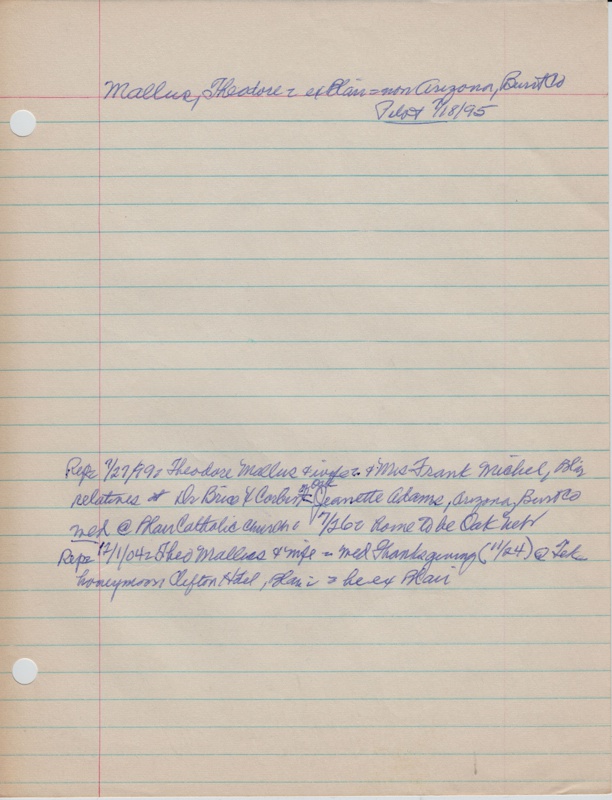 Mallus, Theodore = ex Blair = now Arizona, Burt Co
Pilot 7/18/95
Rep = 7/27/99 = Theodore Mallus & = & Mrs Frank Michel, Bl
relatives of Dr Brice & Corbin, Jeanette Adams, Arizona, Burt Co
med @ Blair Catholic church = 7/26 = Home to be Oak Neb
Rep = 12/1/04 = Theo Mallus & wife = med Thanksgiving (11/24) @ Tek
honeymoon Clifton Hotel, Blair = he ex Blair